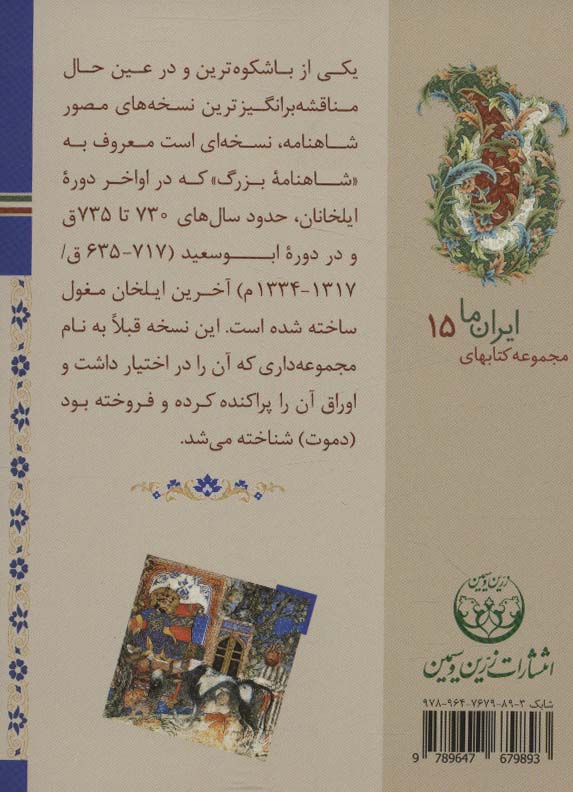 یکی از باشکوه‌ترین و در عین حال
مناقشه‌برانگیزترین نسخه‌های مصور
شاهنامه، نسخه‌ای است معروف به
«شاهنامهٔ بزرگ» که در اواخر دورهٔ
ایلخانان، حدود سال‌های ۷۳۰ تا ۷۳۵ق
و در دورهٔ ابوسعید (۷۱۷-۶۳۵ ق/
۱۳۱۷-۱۳۳۴م) آخرین ایلخان مغول
ساخته شده است. این نسخه قبلاً به نام
مجموعه‌داری که آن را در اختیار داشت و
اوراق آن را پراکنده کرده و فروخته بود
(دموت) شناخته می‌شد.
ایران ما ۱۵
مجموعه کتابهای
زرین و سیمین
انتشارات زرّین و سیمین
شابک ۳-۸۹-۷۶۷۹-۹۶۴-۹۷۸
9 789647 679893